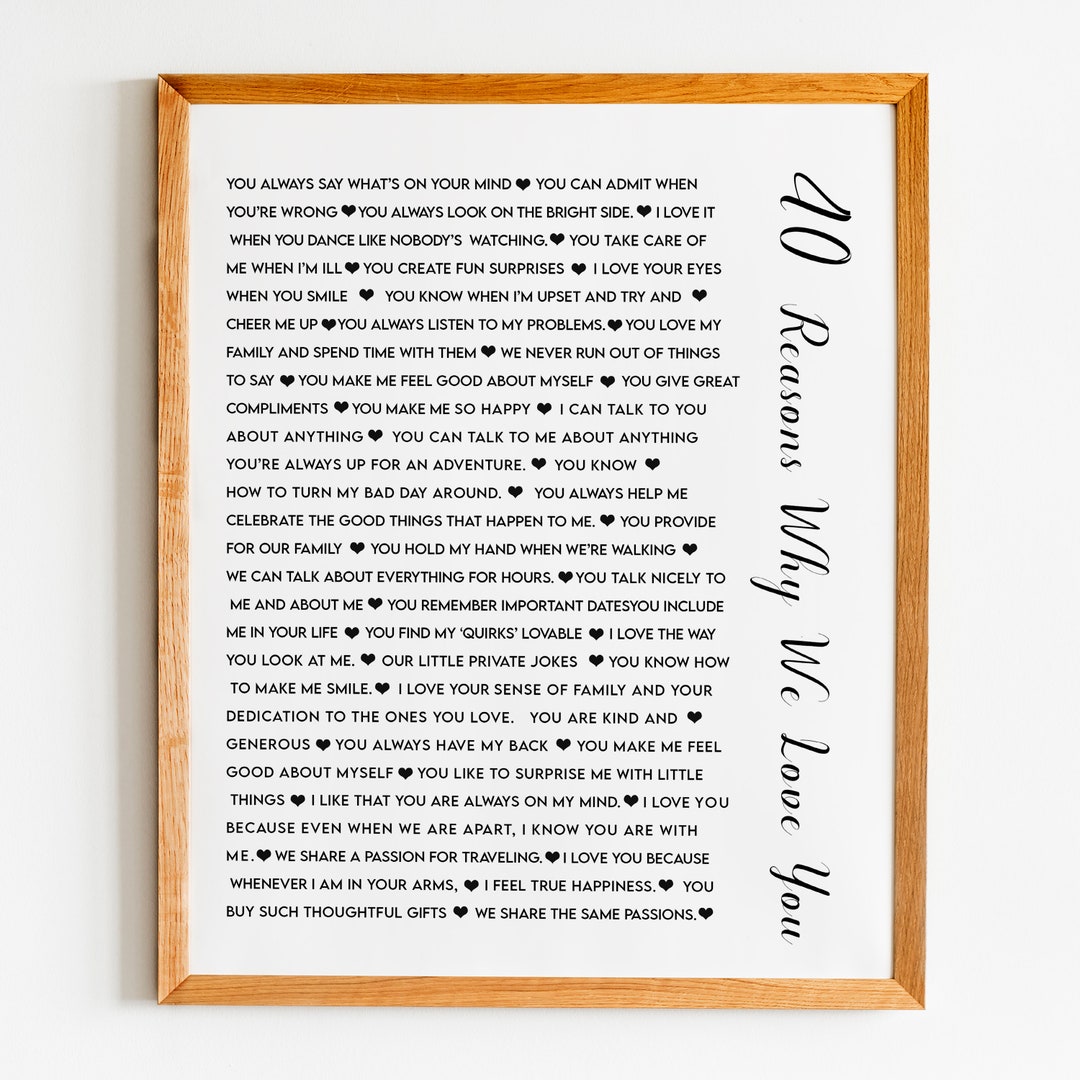 YOU ALWAYS SAY WHAT'S ON YOUR MIND ♥ YOU CAN ADMIT WHEN
YOU'RE WRONG ♥ YOU ALWAYS LOOK ON THE BRIGHT SIDE. ♥ I LOVE IT
WHEN YOU DANCE LIKE NOBODY'S WATCHING. ♥ YOU TAKE CARE OF
ME WHEN I'M ILL ♥ YOU CREATE FUN SURPRISES ♥ I LOVE YOUR EYES
WHEN YOU SMILE ♥ YOU KNOW WHEN I'M UPSET AND TRY AND ♥
CHEER ME UP ♥ YOU ALWAYS LISTEN TO MY PROBLEMS. ♥ YOU LOVE MY
FAMILY AND SPEND TIME WITH THEM ♥ WE NEVER RUN OUT OF THINGS
TO SAY ♥ YOU MAKE ME FEEL GOOD ABOUT MYSELF ♥ YOU GIVE GREAT
COMPLIMENTS ♥ YOU MAKE ME SO HAPPY ♥ I CAN TALK TO YOU
ABOUT ANYTHING ♥ YOU CAN TALK TO ME ABOUT ANYTHING
YOU'RE ALWAYS UP FOR AN ADVENTURE. ♥ YOU KNOW ♥
HOW TO TURN MY BAD DAY AROUND. ♥ YOU ALWAYS HELP ME
CELEBRATE THE GOOD THINGS THAT HAPPEN TO ME. ♥ YOU PROVIDE
FOR OUR FAMILY ♥ YOU HOLD MY HAND WHEN WE'RE WALKING ♥
WE CAN TALK ABOUT EVERYTHING FOR HOURS. ♥ YOU TALK NICELY TO
ME AND ABOUT ME ♥ YOU REMEMBER IMPORTANT DATESYOU INCLUDE
ME IN YOUR LIFE ♥ YOU FIND MY 'QUIRKS' LOVABLE ♥ I LOVE THE WAY
YOU LOOK AT ME. ♥ OUR LITTLE PRIVATE JOKES ♥ YOU KNOW HOW
TO MAKE ME SMILE. ♥ I LOVE YOUR SENSE OF FAMILY AND YOUR
DEDICATION TO THE ONES YOU LOVE. YOU ARE KIND AND ♥
GENEROUS ♥ YOU ALWAYS HAVE MY BACK ♥ YOU MAKE ME FEEL
GOOD ABOUT MYSELF ♥ YOU LIKE TO SURPRISE ME WITH LITTLE
THINGS ♥ I LIKE THAT YOU ARE ALWAYS ON MY MIND. ♥ I LOVE YOU
BECAUSE EVEN WHEN WE ARE APART, I KNOW YOU ARE WITH
ME. ♥ WE SHARE A PASSION FOR TRAVELING. ♥ I LOVE YOU BECAUSE
WHENEVER I AM IN YOUR ARMS, ♥ I FEEL TRUE HAPPINESS. ♥ YOU
BUY SUCH THOUGHTFUL GIFTS ♥ WE SHARE THE SAME PASSIONS. ♥
40 Reasons Why We Love You